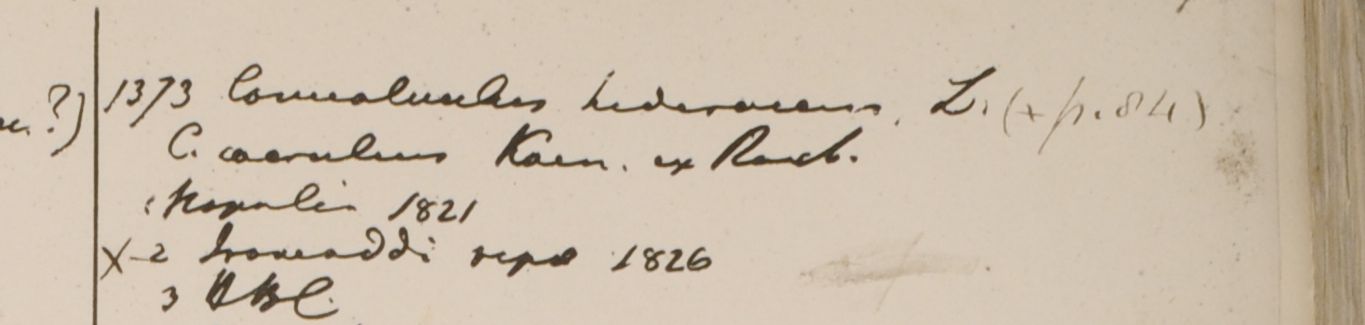 ?) 1373 Convolvulus hederaceus, L. (+ p. 84)
C. caeruleus Koen. ex Roxb.
1 Napalia 1821
X 2 Irawaddi ripa 1826
3 HBC